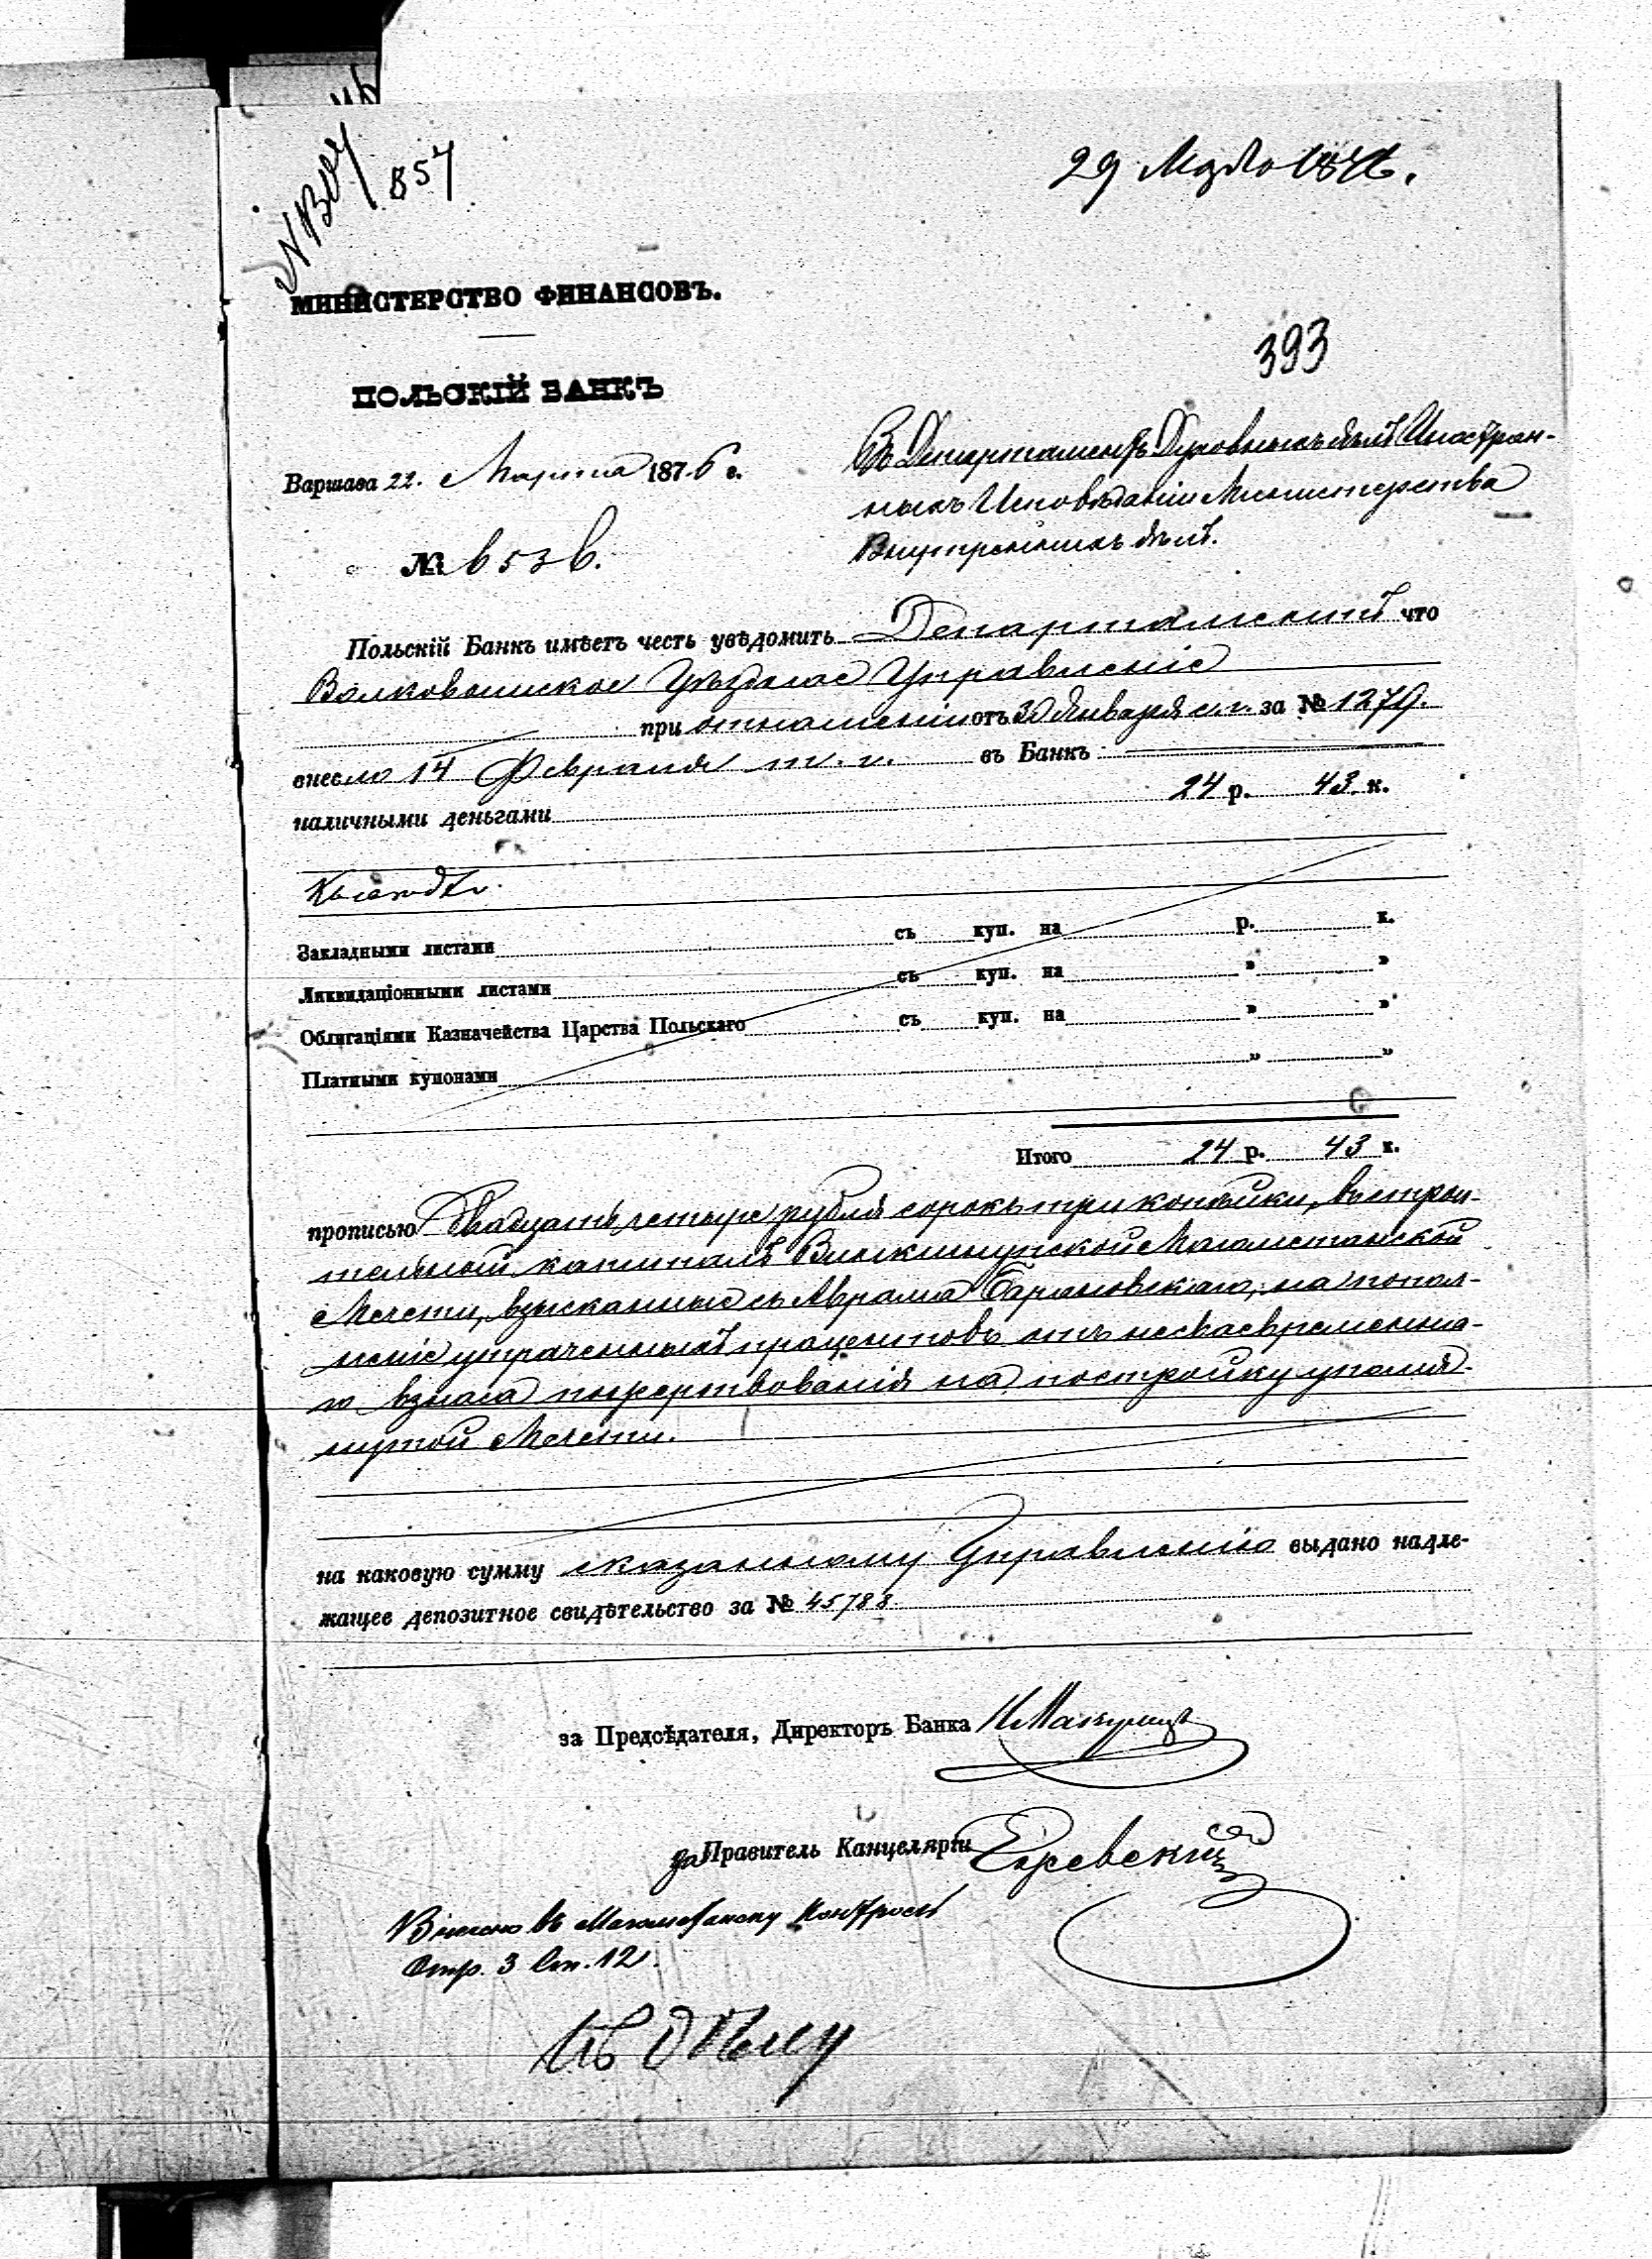 857
29 Марта 1876.
МИНИСТЕРСТВО ФИНАНСОВЪ.
393
ПОЛЬСКІЙ БАНКЪ
Варшава 22. Марта 1876 г.
Въ Департаментъ Духовныхъ дѣлъ Иностран-
ныхъ Исповѣданій Министерства
Внутреннихъ дѣлъ.
№ 6536.
Польскій Банкъ имѣетъ честь увѣдомить Департаментъ что
Волковышское Уѣздное Управленіе
при отношеніи отъ 30 Января с. г. за № 1279.
внесло 14 Февраля т. г. въ Банкъ
наличными деньгами 24 р. 43 к.
Закладными листами съ куп. на р. к.
Ликвидаціонными листами съ куп. на " "
Облигаціями Казначейства Царства Польскаго съ куп. на " "
Платными купонами " "
Итого 24 р. 43 к.
прописью Двадцать четыре рубля сорокъ три копѣйки, въ строи-
тельный капиталъ Винкшнупской Магометанской
Мечети, взысканные съ Абрама Барановскаго, на попол-
неніе утраченныхъ процентовъ отъ несвоевременна-
го взноса пожертвованія на постройку упомя-
нутой Мечети.
на каковую сумму сказанному Управленію выдано надле-
жащее депозитное свидѣтельство за № 45788
за Предсѣдателя, Директоръ Банка
за Правитель Канцеляріи
Внесено въ Магометанску Контроль
Стр. 3 Ст. 12.
Къ дѣлу